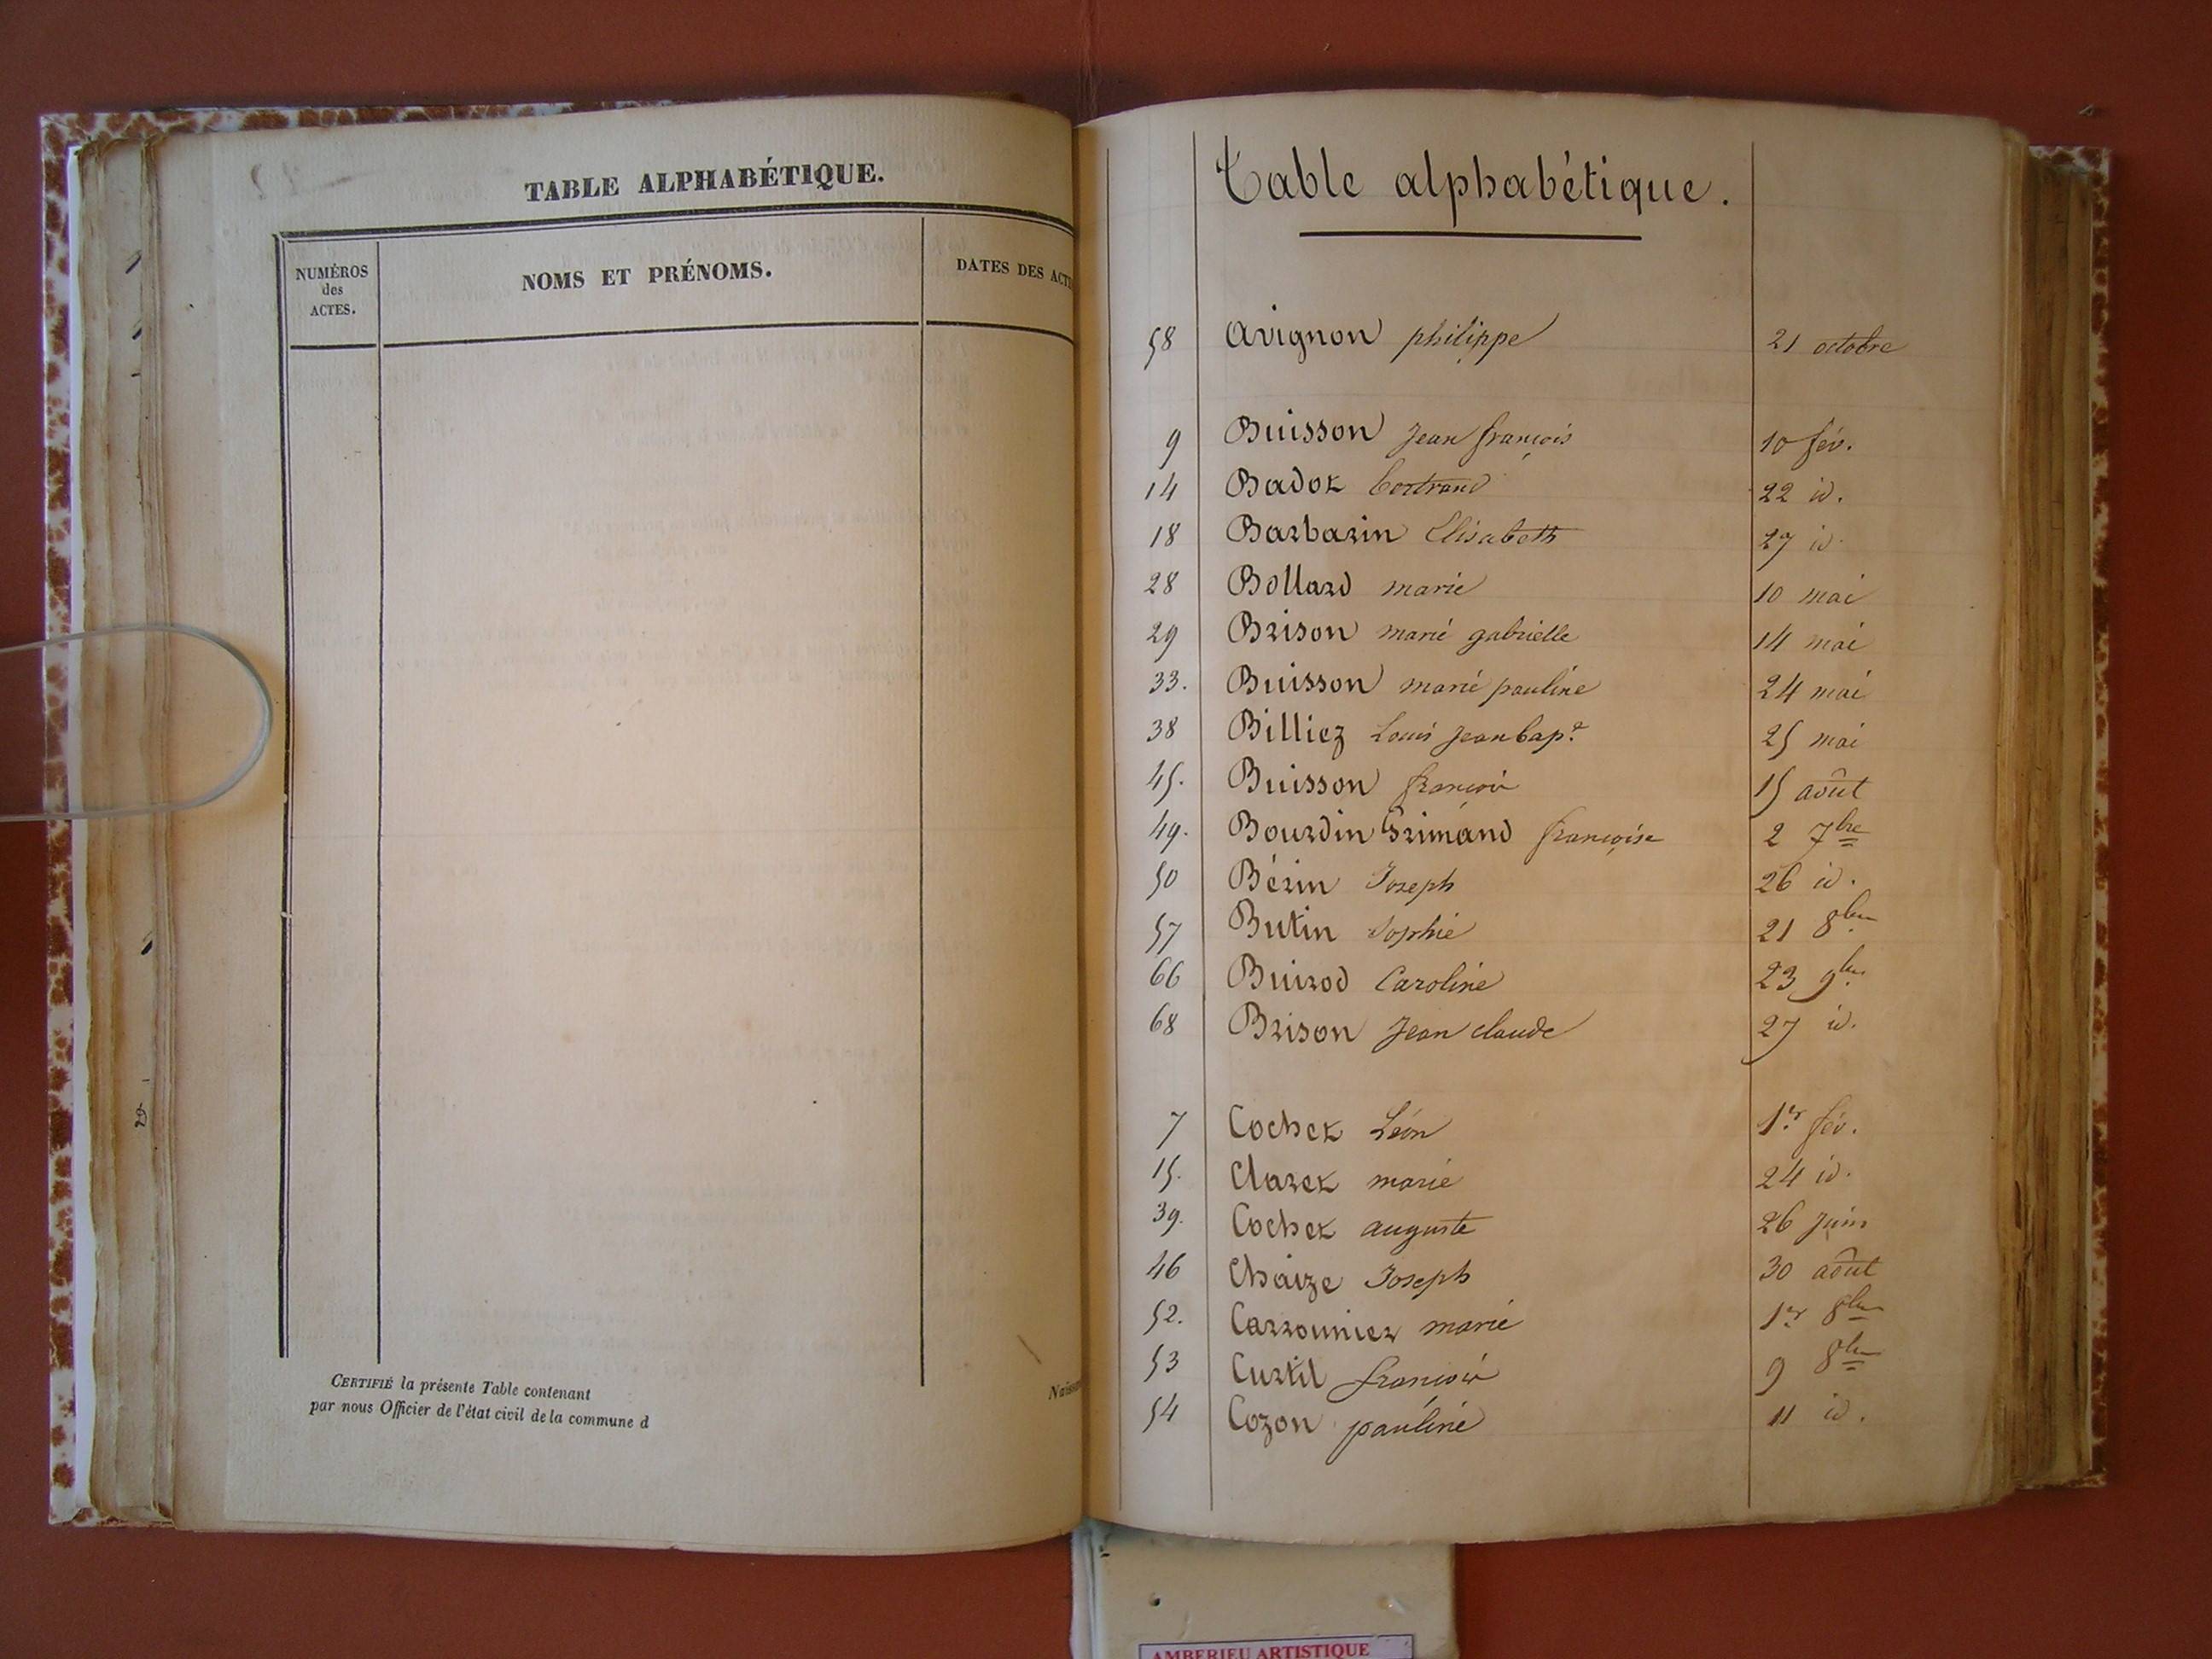 TABLE ALPHABÉTIQUE.
NUMÉROS
des
ACTES.
NOMS ET PRÉNOMS.
DATES DES ACT
CERTIFIÉ la présente Table contenant
par nous Officier de l'état civil de la commune d
Table alphabétique.
58 Avignon philippe 21 octobre
9 Buisson Jean françois 10 fév.
14 Badot bertrand 22 id.
18 Barbarin Elisabeth 27 id.
28 Bollard marie 10 mai
29 Brison marie gabrielle 14 mai
33. Buisson marie pauline 24 mai
38 Billiez Louis Jean bapt.e 25 mai
45. Buisson françois 15 août
49. Bourdin Grimand françoise 2 7bre
50 Bérin Joseph 26 id.
57 Butin Sophie 21 8bre
66 Buirod Caroline 23 9bre
68 Brison Jean claude 27 id.
7 Cochet Léon 1er fév.
15. Claret marie 24 id.
39. Cochet auguste 26 juin
46 Chaize Joseph 30 août
52. Carronnier marie 1er 8bre
53 Curtil françois 9 8bre
54 Cozon pauline 11 id.
AMBERIEU ARTISTIQUE